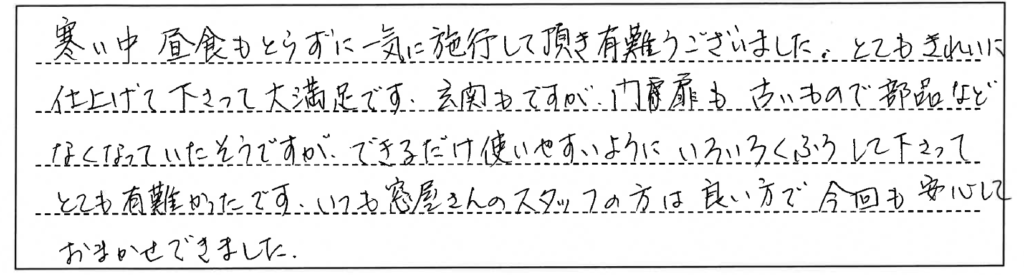 寒い中 昼食もとらずに一気に施行して頂き有難うございました。とてもきれいに
仕上げて下さって大満足です。玄関もですが、門扉も 古いもので部品など
なくなっていたそうですが、できるだけ使いやすいように いろいろくふうして下さって
とても有難かったです。いつも窓屋さんのスタッフの方は 良い方で 今回も 安心して
おまかせできました。